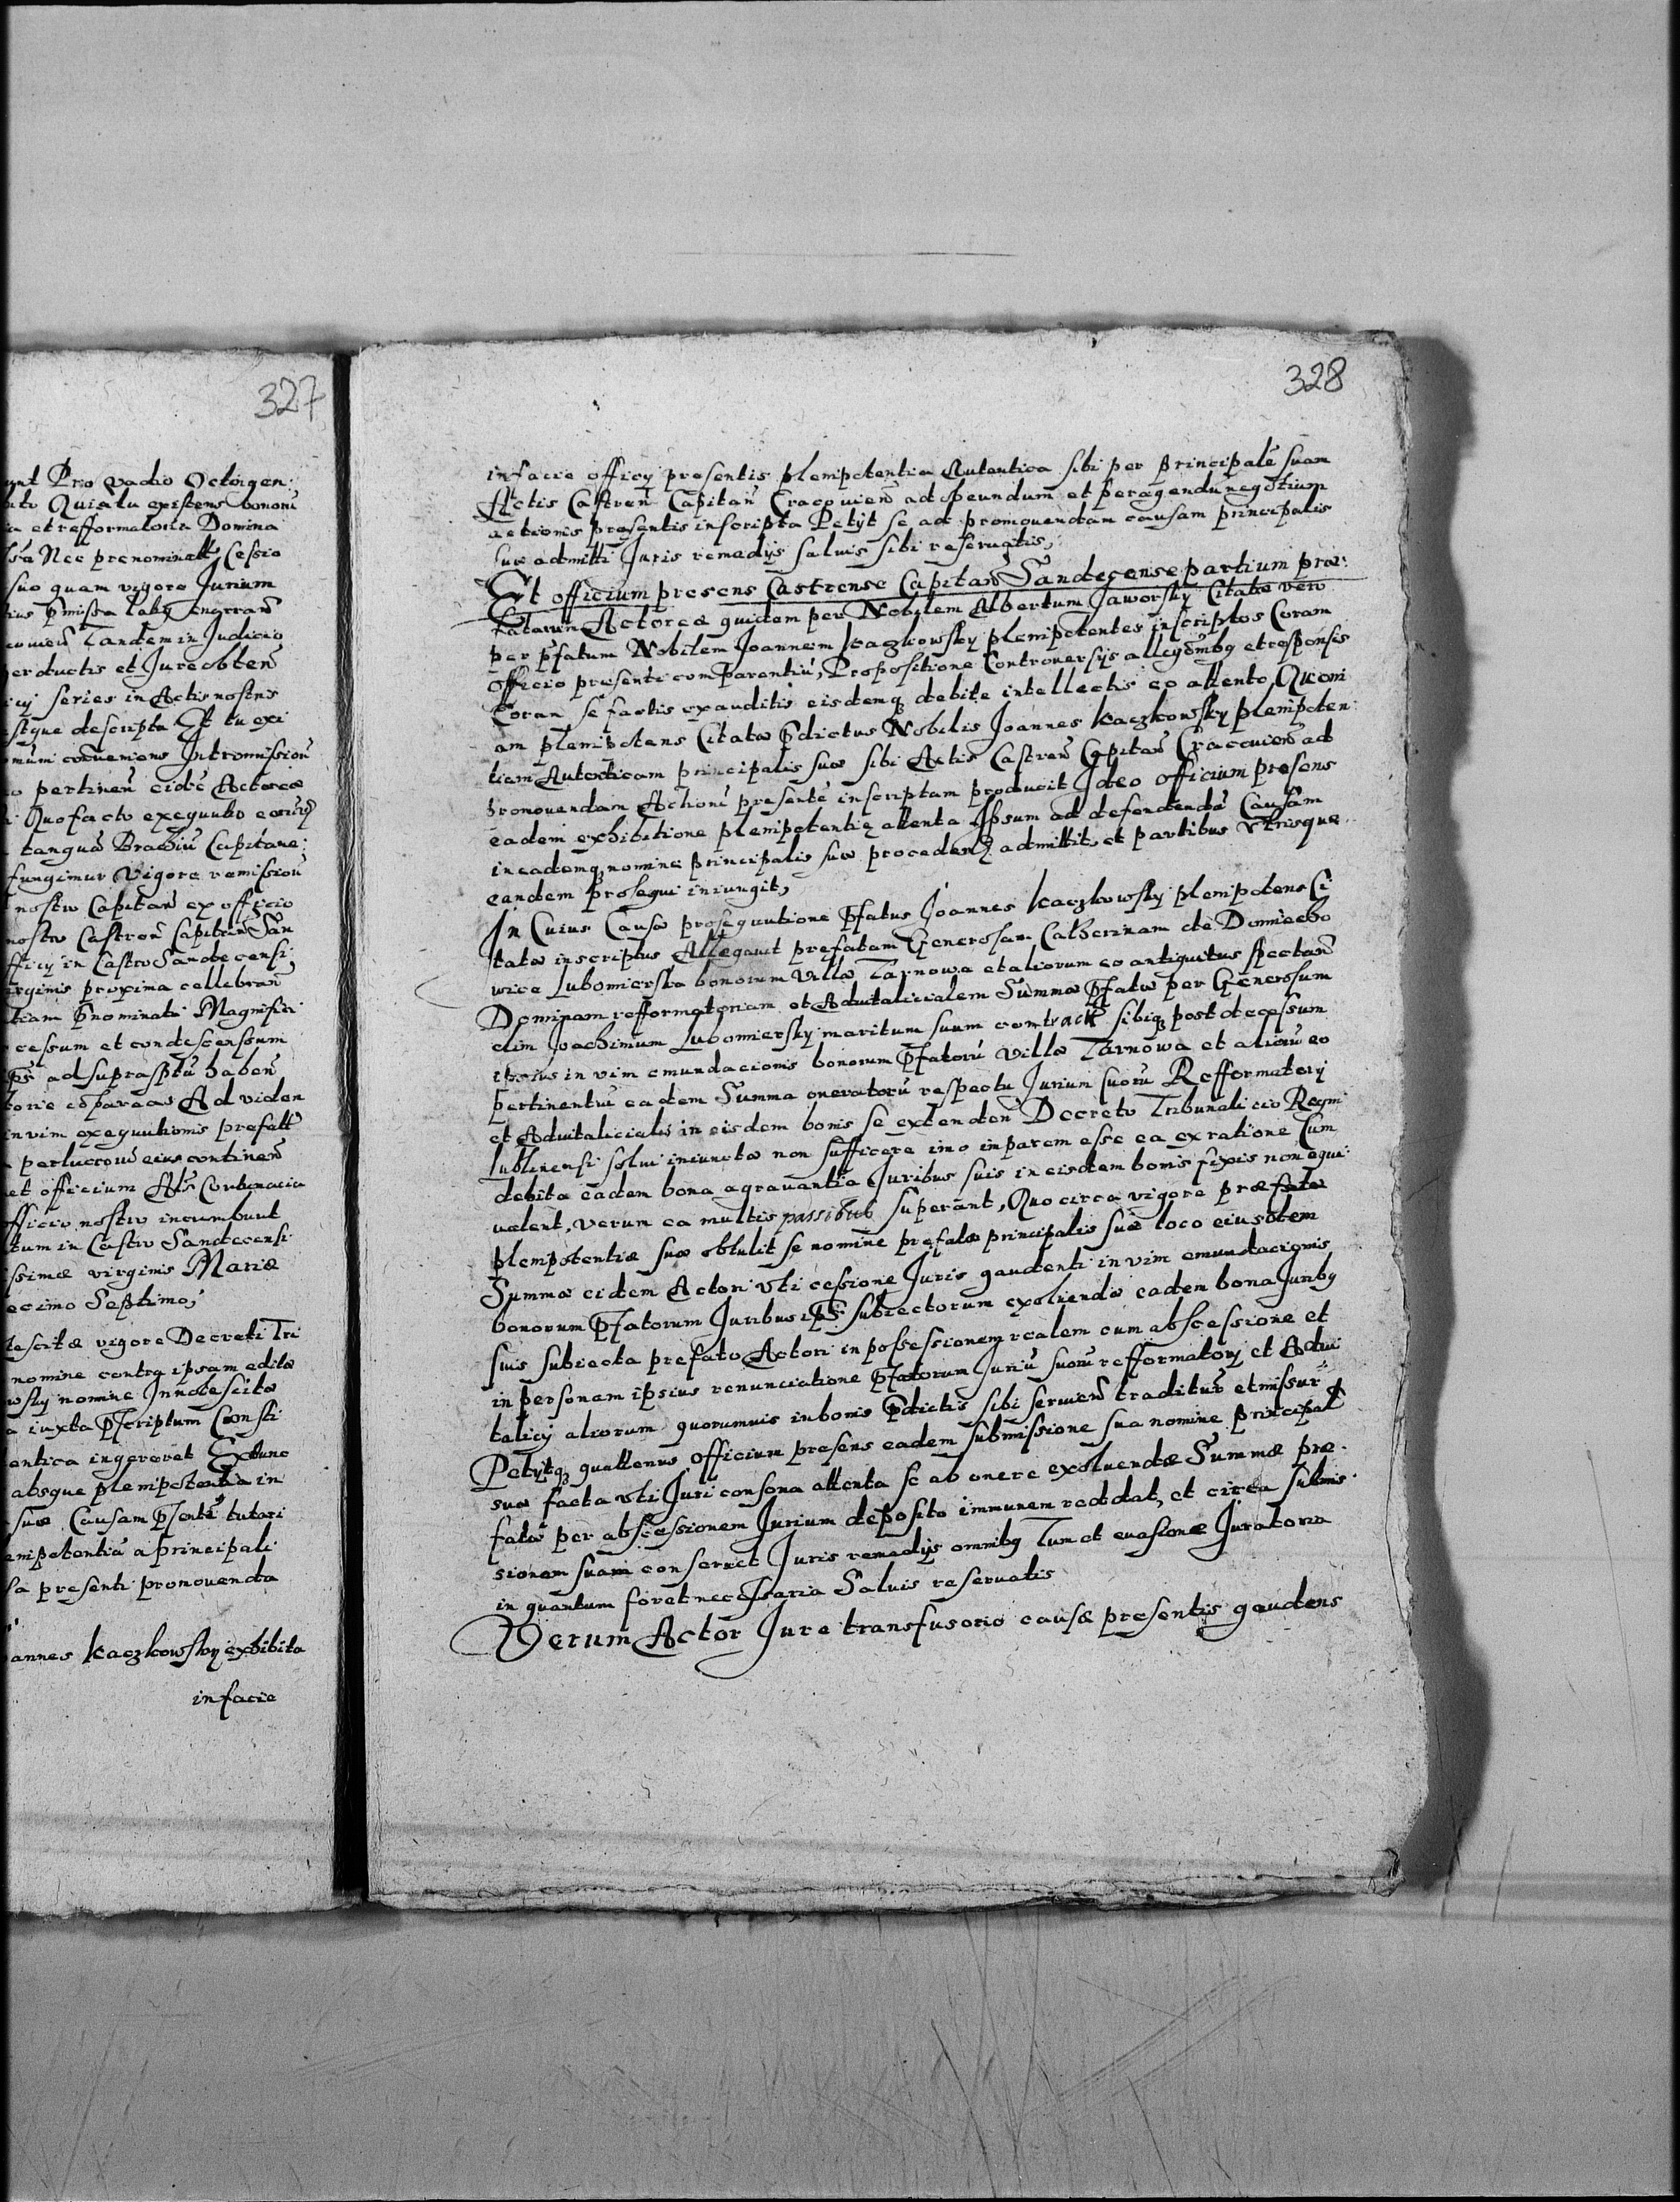 327
unt Pro vadio Octoigen:
Quialu existens bonorū
et refformatoria Domina
Nec prenominatt Cessio
suo quam vigore Jurium
Tandem in Judicio
productis et Jure obten̄
series in Actis nostris
que descripta Et tu exi
conveniens Intromission̄
pertinen̄ eidē Actoreæ
Quo facto exequutio
tanquā Brachiū Capitane:
fungimur Vigore remission̄
nostro Capitan̄ ex officio
nostro Castren̄ Capitan̄ San
officij in Castro Sandecensi
virginis proxima cellebran̄
p̄nominati Magnifici
cessum et condescenssum
ad suprasptū haben̄
Ad viden
in vim exequutionis prefatt
eius continen̄
et officium Als̄ Contumacia
officio nostro incumbunt
tum in Castro Sandecensi
issimæ virginis Mariæ
ecimo Septimo,
vigore Decreti Tri
nomine contra ipsam editæ
wsky nomine Innotescitæ
iuxta p̄scriptum Consti
entica ingereret Extunc
absque plenipotentia in
suæ Causam p̄sentē tutari
enipotentiā a principali
presenti promovenda
annes Kaczkowsky exhibita
in facie
328
in facie officij presentis plenipotentia Autentica sibi per principalē suam
Actis Castren̄ Capitan̄ Cracovien̄ ad obeundum et peragendū negotium
actionis presentis inscripta Petijt se ad promovendam causam principalis
suæ admitti Juris remedijs salvis sibi reservatis,
Et officium presens Castrense Capitan̄ Sandecense partium præ:
fatarum Actoreæ quidem per Nobilem Albertum Jaworsky Citatæ vero
per p̄fatum Nobilem Joannem Kaczkowsky plenipotentes inscriptos Coram
officio presenti comparentiū, Propositione Controversijs allegōnibꝫ et responsis
Coram se factis exauditis eisdemqꝫ debite intellectis eo attento, Quoni
am plenipotens Citatæ p̄dictus Nobilis Joannes Kaczkowsky plenipoten:
tiam Autenticam principalis suæ sibi Actis Castren̄ Capitan̄ Cracovien̄ ad
promovendam Actionē presentē inscriptam producit Ideo officium presens
eadem exhibitione plenipotentię attenta Ipsum ad defendendā Causam
in eademqꝫ nomine principalis suæ procedend̄ admittit, et partibus Utrisque
eandem prosequi iniungit,
In Cuius Causæ prosequutione p̄fatus Joannes Kaczkowsky plenipotens Ci
tatæ inscriptus Allegavit prefatam Generosam Catherinam de Domiecho
wice Lubomierska bonorum villæ Tarnowa et aliorum eo antiquitus spectan̄
Dominam refformatoriam et Advitalicialem Summæ p̄fatæ per Generosum
olim Joachimum Lubomiersky maritum suum contractæ sibiqꝫ post decessum
ipsius in vim emundacionis bonorum p̄fatorū villæ Tarnowa et aliorū eo
pertinentiū eadem Summa oneratorū respectu Jurium suorū Refformatorij
et Advitalicialis in eisdem bonis se extenden̄ Decreto Tribunalicio Regni
Lublinensi solvi iniunctæ non sufficere imo inparem esse ea ex ratione Cum
debita eadem bona agravantia Juribus suis in eisdem bonis fixis non equi:
valent, verum ea multis passibus superant, Quo circa vigore præfatæ
plenipotentiæ suæ obtulit se nomine prefatæ principalis suæ loco eiusdem
Summæ eidem Actori vti cessione Juris gaudenti in vim emundacionis
bonorum p̄fatorum Juribus ip̄s̄ subiectorum exoluendæ eadem bona Juribꝫ
suis subiecta prefato Actori in possessionem realem cum abscessione et
in personam ipsius renunciatione p̄fatorum Juriū suorū refformatorij et Advi
talicij aliorum quorumvis in bonis p̄dictis sibi servien̄ traditur̄ et missur̄
Petijtqꝫ quattenus officium presens eadem submissione sua nomine principal̄
suæ facta vti Juri consona attenta se ab onere exoluendæ Summæ præ.
fatæ per abscessionem Jurium deposito immunem reddat, et circa submis:
sionem suam conservet Juris remedijs omnibꝫ Tum et evasione Juratoria
in quantum foret necessaria Salvis reservatis
Verum Actor Jure transfusorio causæ presentis gaudens